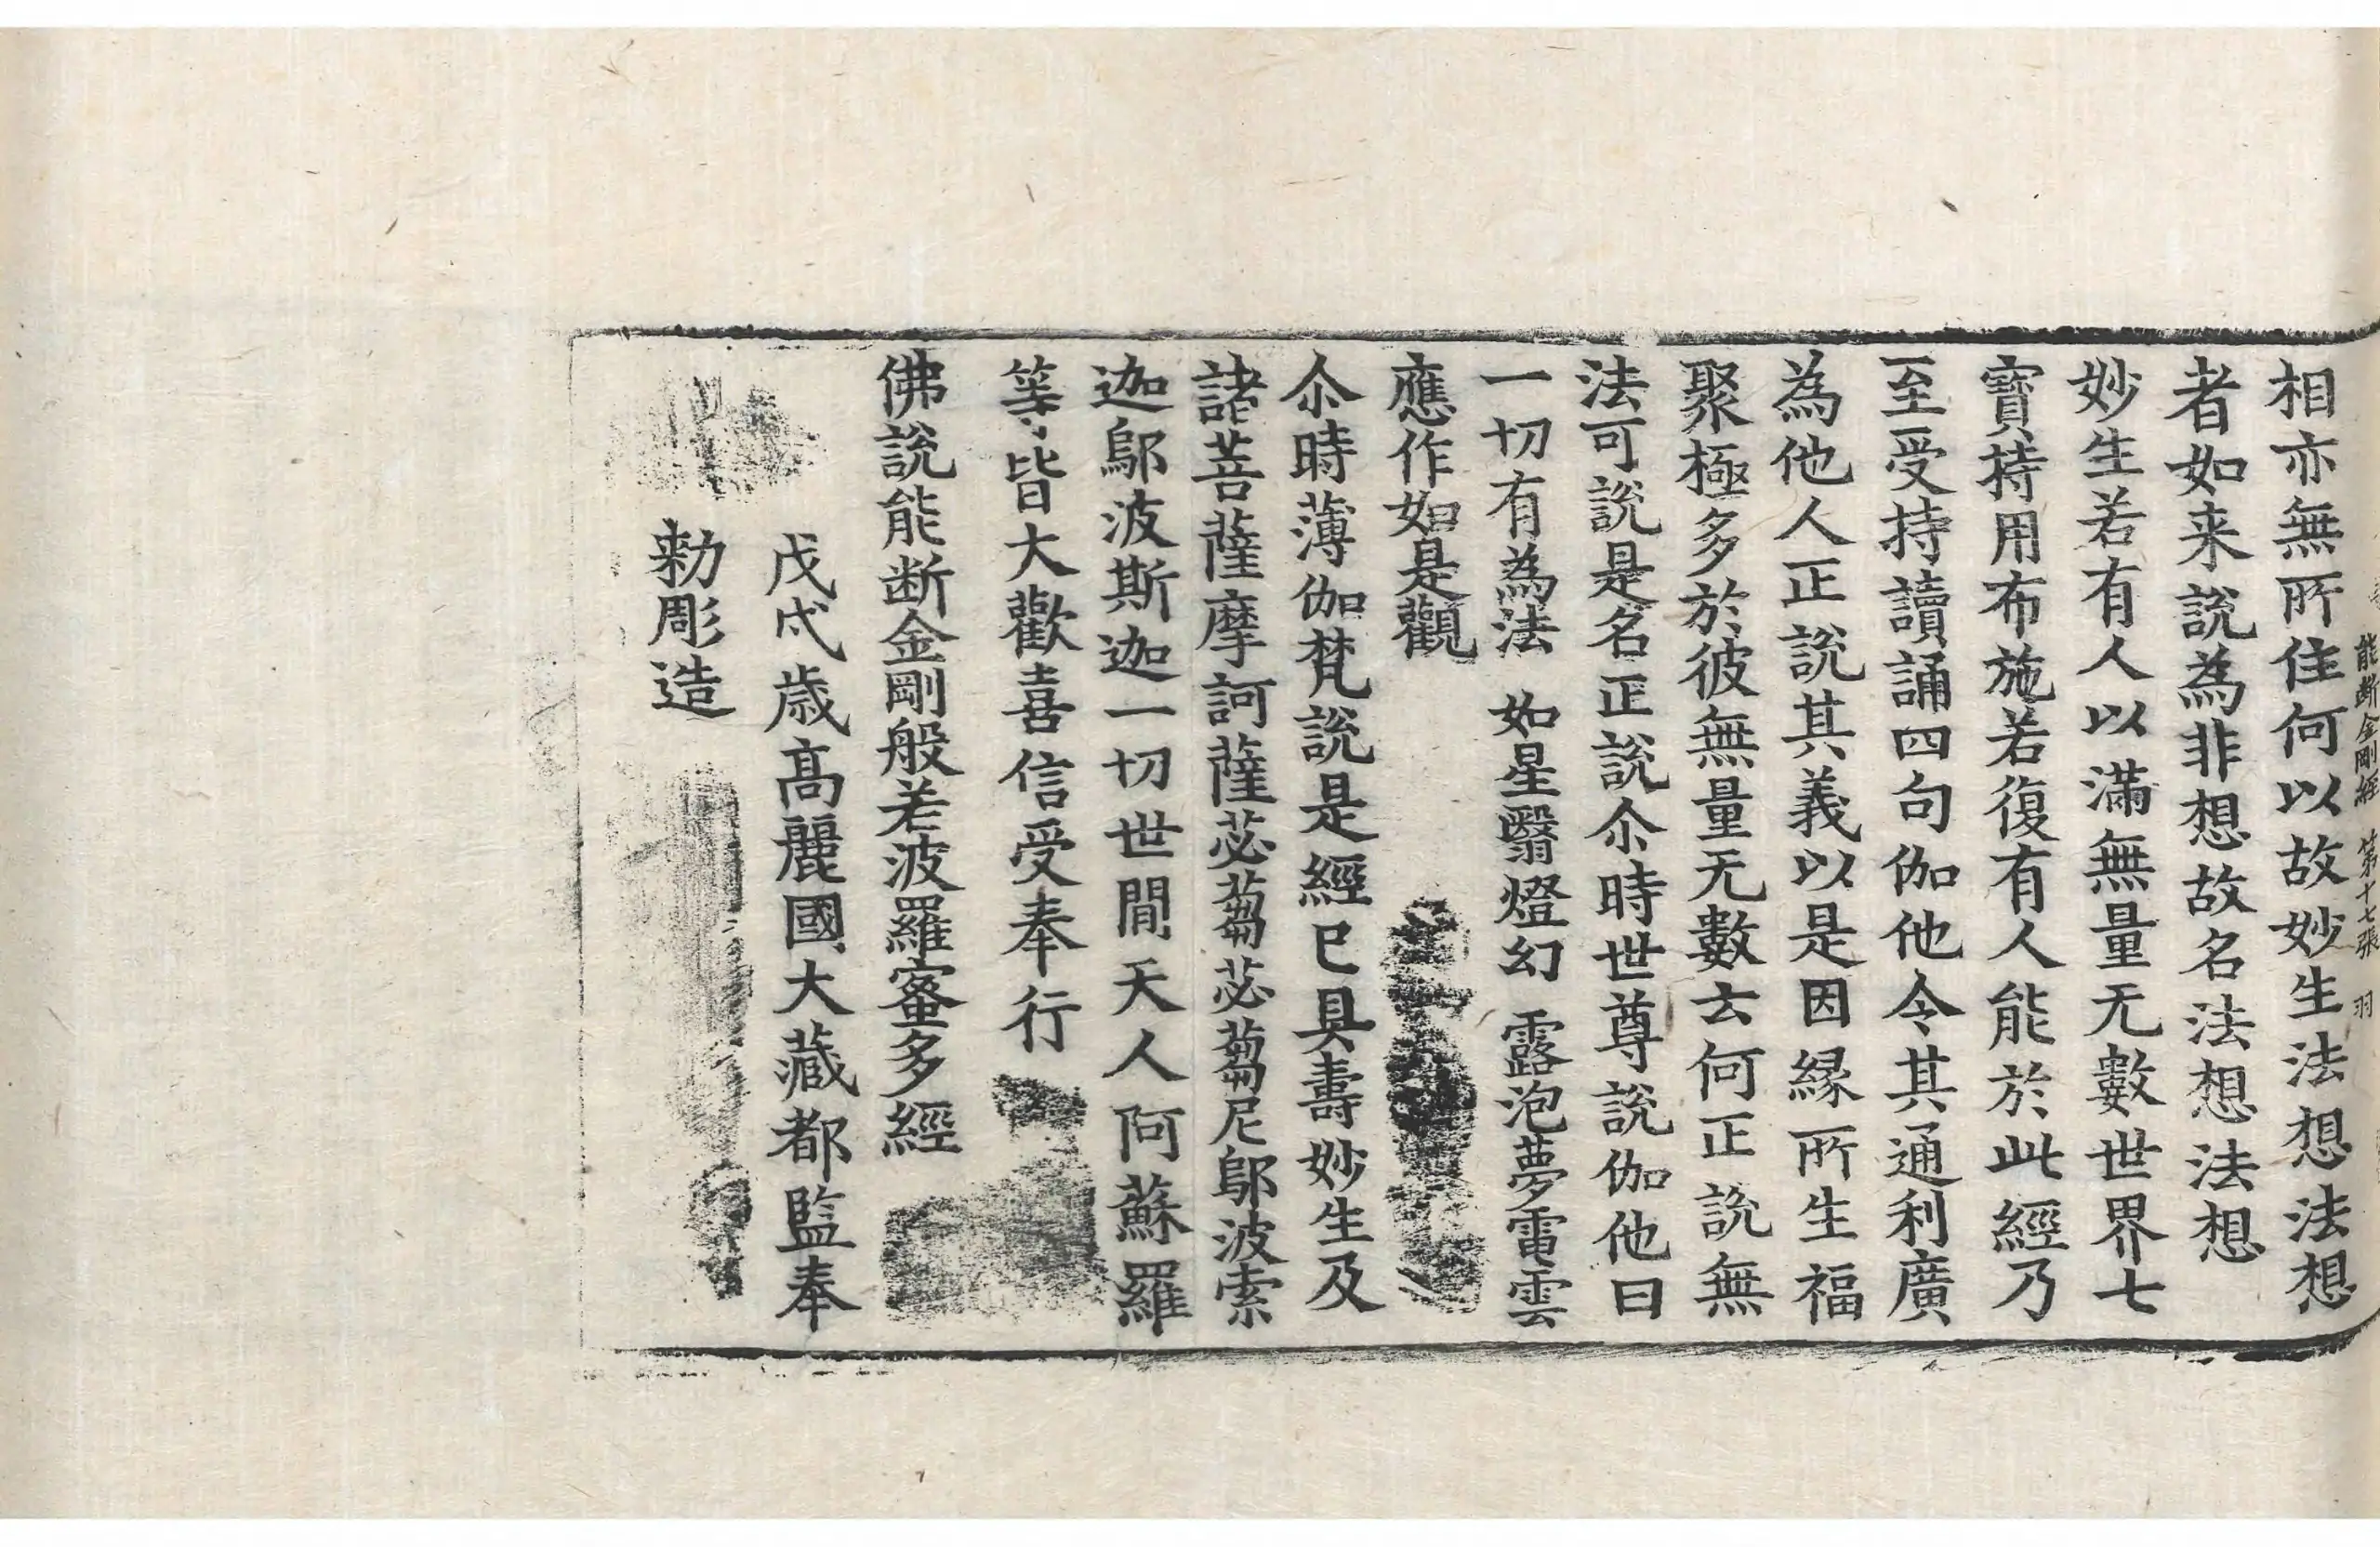 能斷金剛經 第十七張 羽
相亦無所住何以故妙生法想法想
者如来說為非想故名法想法想
妙生若有人以滿無量无數世界七
寳持用布施若復有人能於此經乃
至受持讀誦四句伽他令其通利廣
為他人正說其義以是因緣所生福
聚極多於彼無量无數云何正說無
法可說是名正說尒時世尊說伽他曰
一切有為法 如星翳燈幻 露泡夢電雲
應作如是觀
尒時薄伽梵說是經已具壽妙生及
諸菩薩摩訶薩苾蒭苾蒭尼鄔波索
迦鄔波斯迦一切世間天人阿蘇羅
等皆大歡喜信受奉行
佛說能断金剛般若波羅蜜多經
戊戌歳髙麗國大藏都監奉
勅彫造